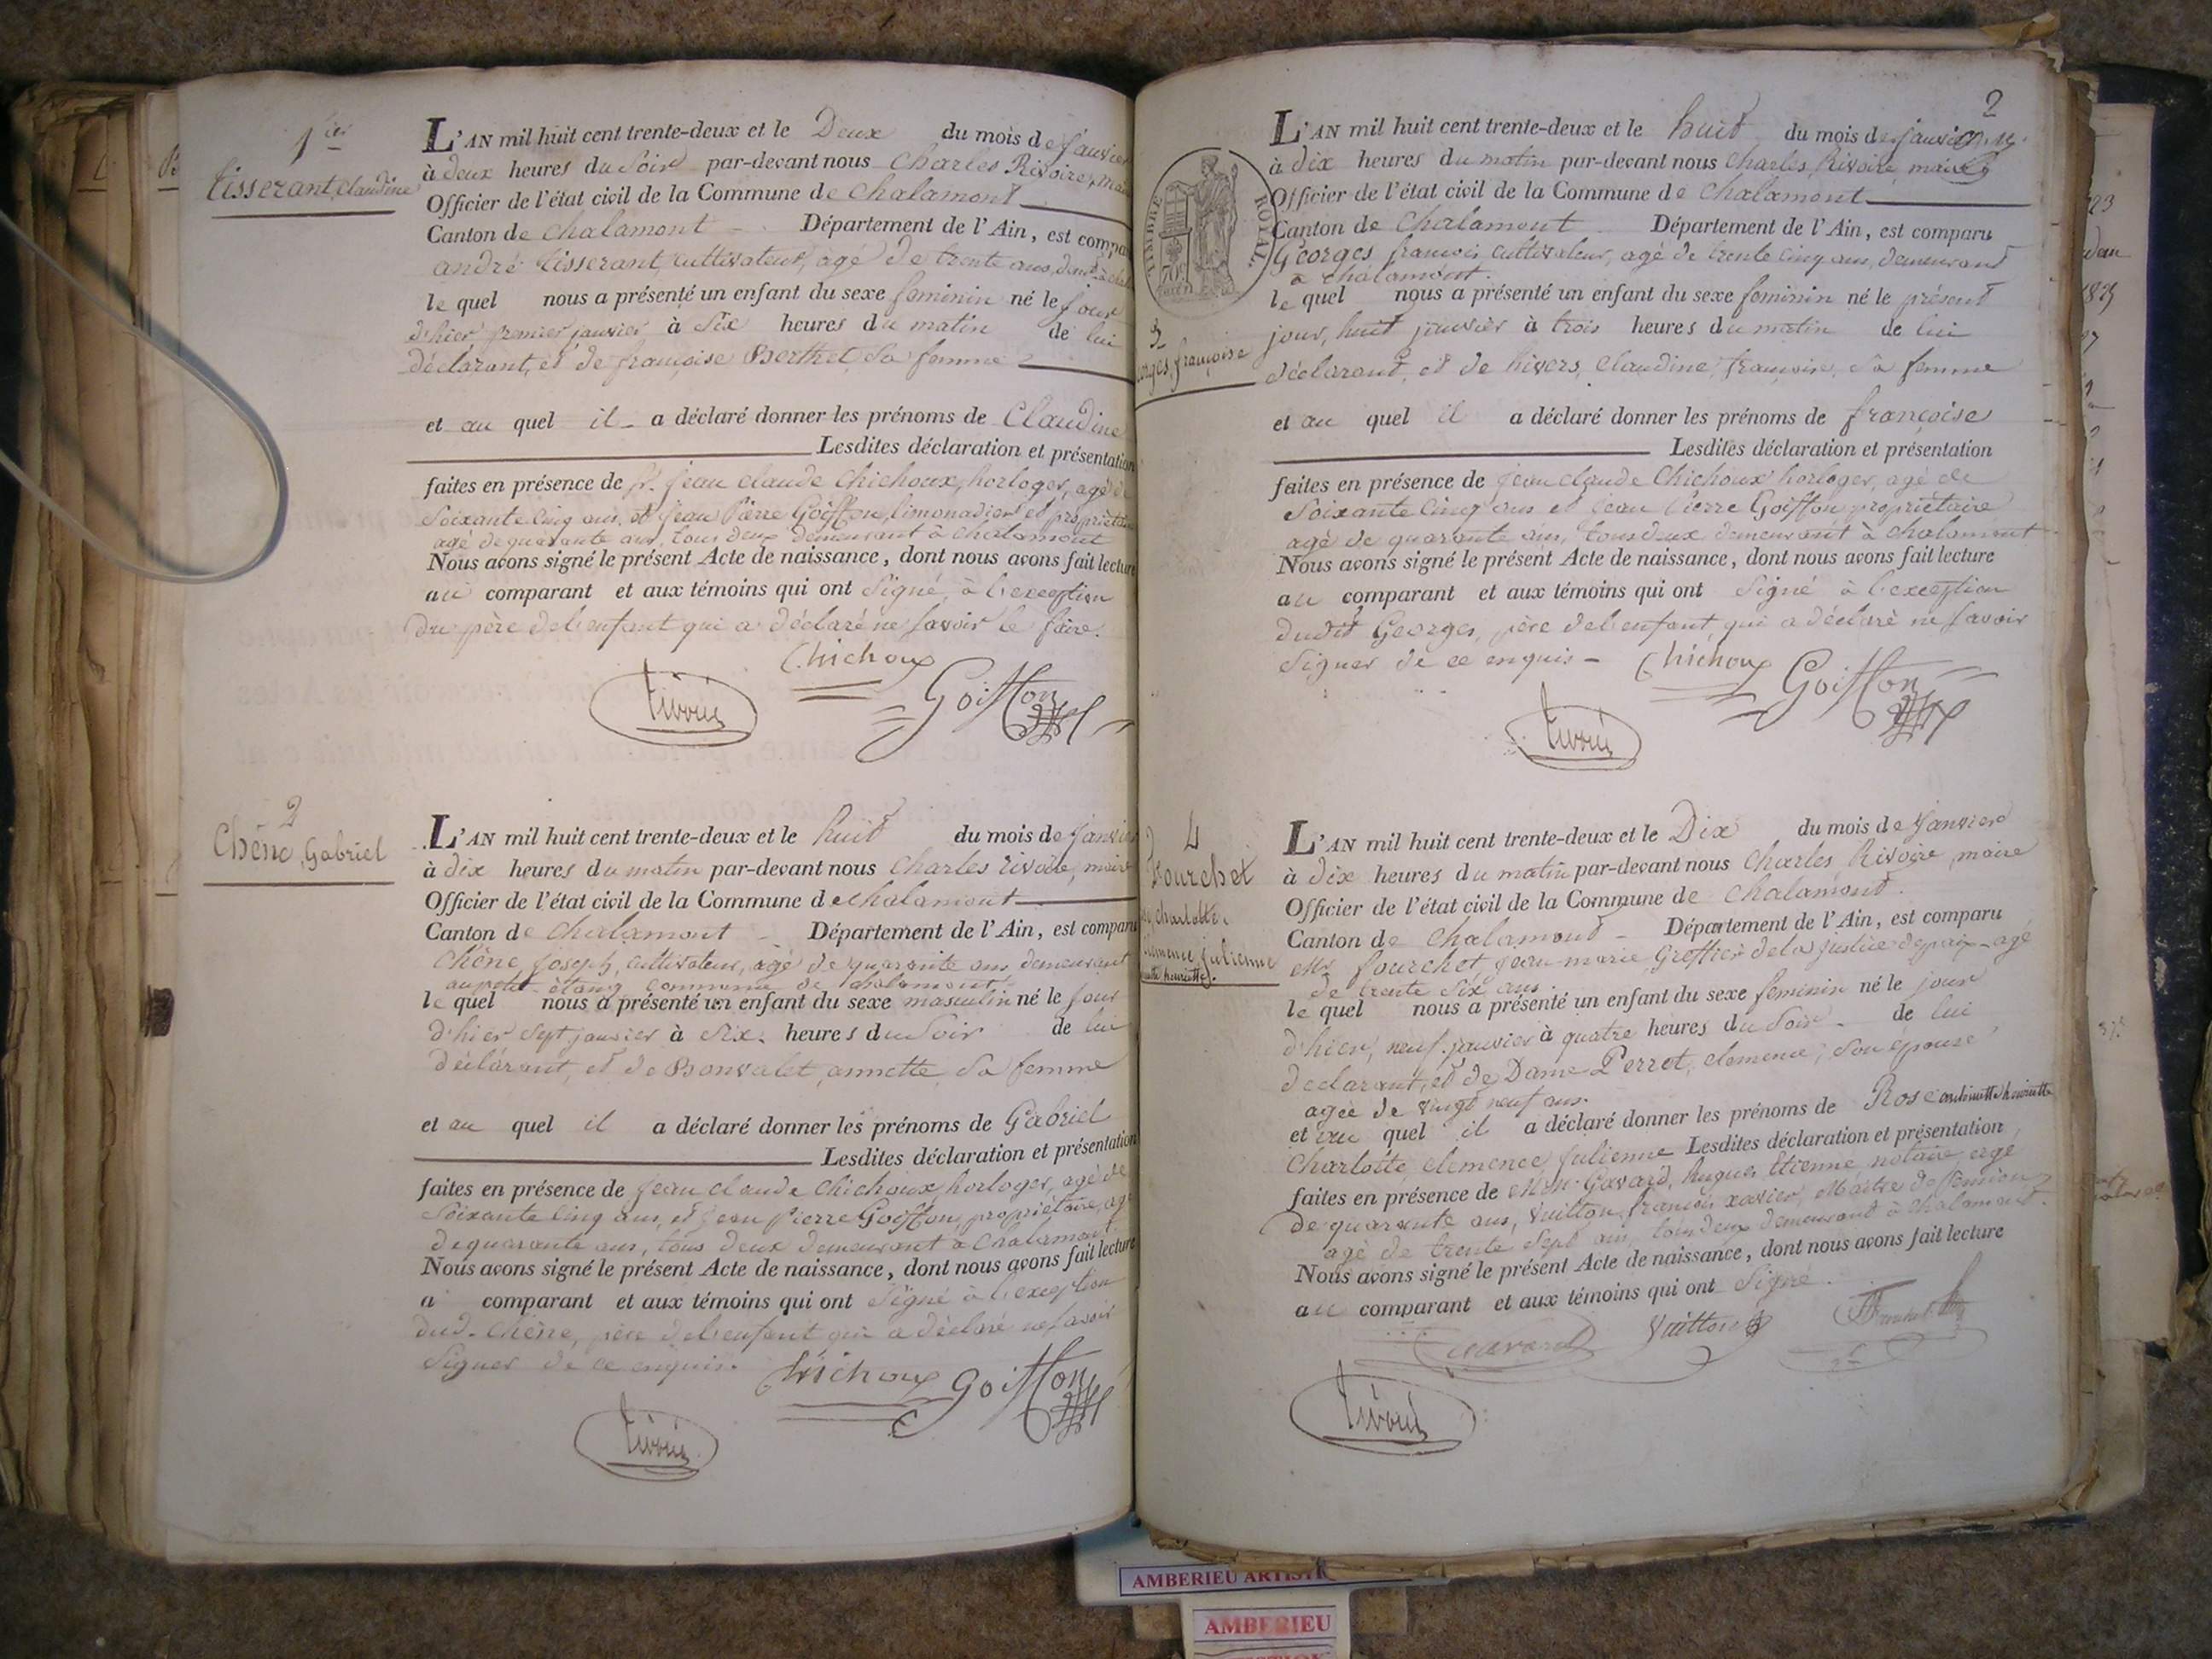 1er
Tisserant, Claudine
L'AN mil huit cent trente-deux et le Deux du mois de Janvier
à deux heures du Soir par-devant nous Charles Rivoire, mai
Officier de l'état civil de la Commune de Chalamont
Canton de Chalamont Département de l'Ain, est compa
andré tisserant, cultivateur, agé de trente ans,
le quel nous a présenté un enfant du sexe feminin né le jour
d'hier premier janvier à Six heures du matin de lui
déclarant, et de françoise Berthet, Sa femme
et au quel il a déclaré donner les prénoms de Claudine
Lesdites déclaration et présentation
faites en présence de Sr. Jean claude Chichoux, horloger, agé de
Soixante cinq ans, et Jean Pierre Goiffon, limonadier et propriétaire
agé de quarante ans, tous deux demeurant à Chalamont
Nous avons signé le présent Acte de naissance, dont nous avons fait lecture
au comparant et aux témoins qui ont Signé, à l'exception
du père de l'enfant qui a déclaré ne savoir le faire.
Chichoux
Goiffon
Rivoire
2
Chêne, Gabriel
L'AN mil huit cent trente-deux et le huit du mois de Janvie
à dix heures du matin par-devant nous Charles rivoire, maire
Officier de l'état civil de la Commune de chalamont
Canton de Chalamont Département de l'Ain, est comparu
Chêne, Joseph, cultivateur, agé de quarante ans demeurant
au petit étang commune de chalamont
le quel nous a présenté un enfant du sexe masculin né le jour
d'hier Sept janvier à Six heures du Soir de lui
déclarant, et de Bonvalet, annette, Sa femme
et au quel il a déclaré donner les prénoms de Gabriel
Lesdites déclaration et présentation
faites en présence de Jean claude Chichoux, horloger, agé de
Soixante cinq ans, et Jean Pierre Goiffon, propriétaire, ag
de quarante ans, tous deux demeurant à Chalamont
Nous avons signé le présent Acte de naissance, dont nous avons fait lecture
a comparant et aux témoins qui ont Signé à l'exception
dud. Chêne, père de l'enfant qui a déclaré ne savoir
Signer de ce enquis.
Chichoux
Goiffon
Rivoire
2
TIMBRE ROYAL
3
orges, françoise
L'AN mil huit cent trente-deux et le huit du mois de janvier
à dix heures du matin par-devant nous Charles, Rivoire, maire
Officier de l'état civil de la Commune de Chalamont
Canton de Chalamont Département de l'Ain, est comparu
Georges françois cultivateur, agé de trente cinq ans, demeurant
à Chalamont.
le quel nous a présenté un enfant du sexe feminin né le présent
jour, huit janvier à trois heures du matin de lui
déclarant, et de hivers, Claudine, françoise, Sa femme
et au quel il a déclaré donner les prénoms de françoise
Lesdites déclaration et présentation
faites en présence de Jean claude Chichoux horloger, agé de
Soixante cinq ans et Jean Pierre Goiffon propriétaire
agé de quarante ans, tous deux demeurant à chalamont
Nous avons signé le présent Acte de naissance, dont nous avons fait lecture
au comparant et aux témoins qui ont Signé à l'exception
dudit Georges, père de l'enfant, qui a déclaré ne savoir
Signer de ce enquis
Chichoux
Goiffon
Rivoire
4
Fourchet
charlotte
clemence julienne
henriette.
L'AN mil huit cent trente-deux et le Dix du mois de Janvier
à dix heures du matin par-devant nous Charles, Rivoire, maire
Officier de l'état civil de la Commune de Chalamont.
Canton de Chalamont Département de l'Ain, est comparu
Mr fourchet Jean-marie Greffier de la Justice de paix agé
de trente Six ans
le quel nous a présenté un enfant du sexe feminin né le jour
d'hier, neuf janvier à quatre heures du Soir de lui
declarant, et de Dame Perret, clemence, Son épouse,
agée de vingt neuf ans.
et au quel il a déclaré donner les prénoms de Rose antoinette henriette
Charlotte, clemence, Julienne Lesdites déclaration et présentation
faites en présence de Mr Gavard, hugues Etienne, notaire, agé
de quarante ans, Vuitton, françois xavier, Maitre de Pension,
agé de trente Sept ans, tous deux demeurant à Chalamont.
Nous avons signé le présent Acte de naissance, dont nous avons fait lecture
au comparant et aux témoins qui ont Signé.
Gavard
Vuitton
Fourchet
Rivoire
AMBERIEU ARTISTI
AMBERIEU